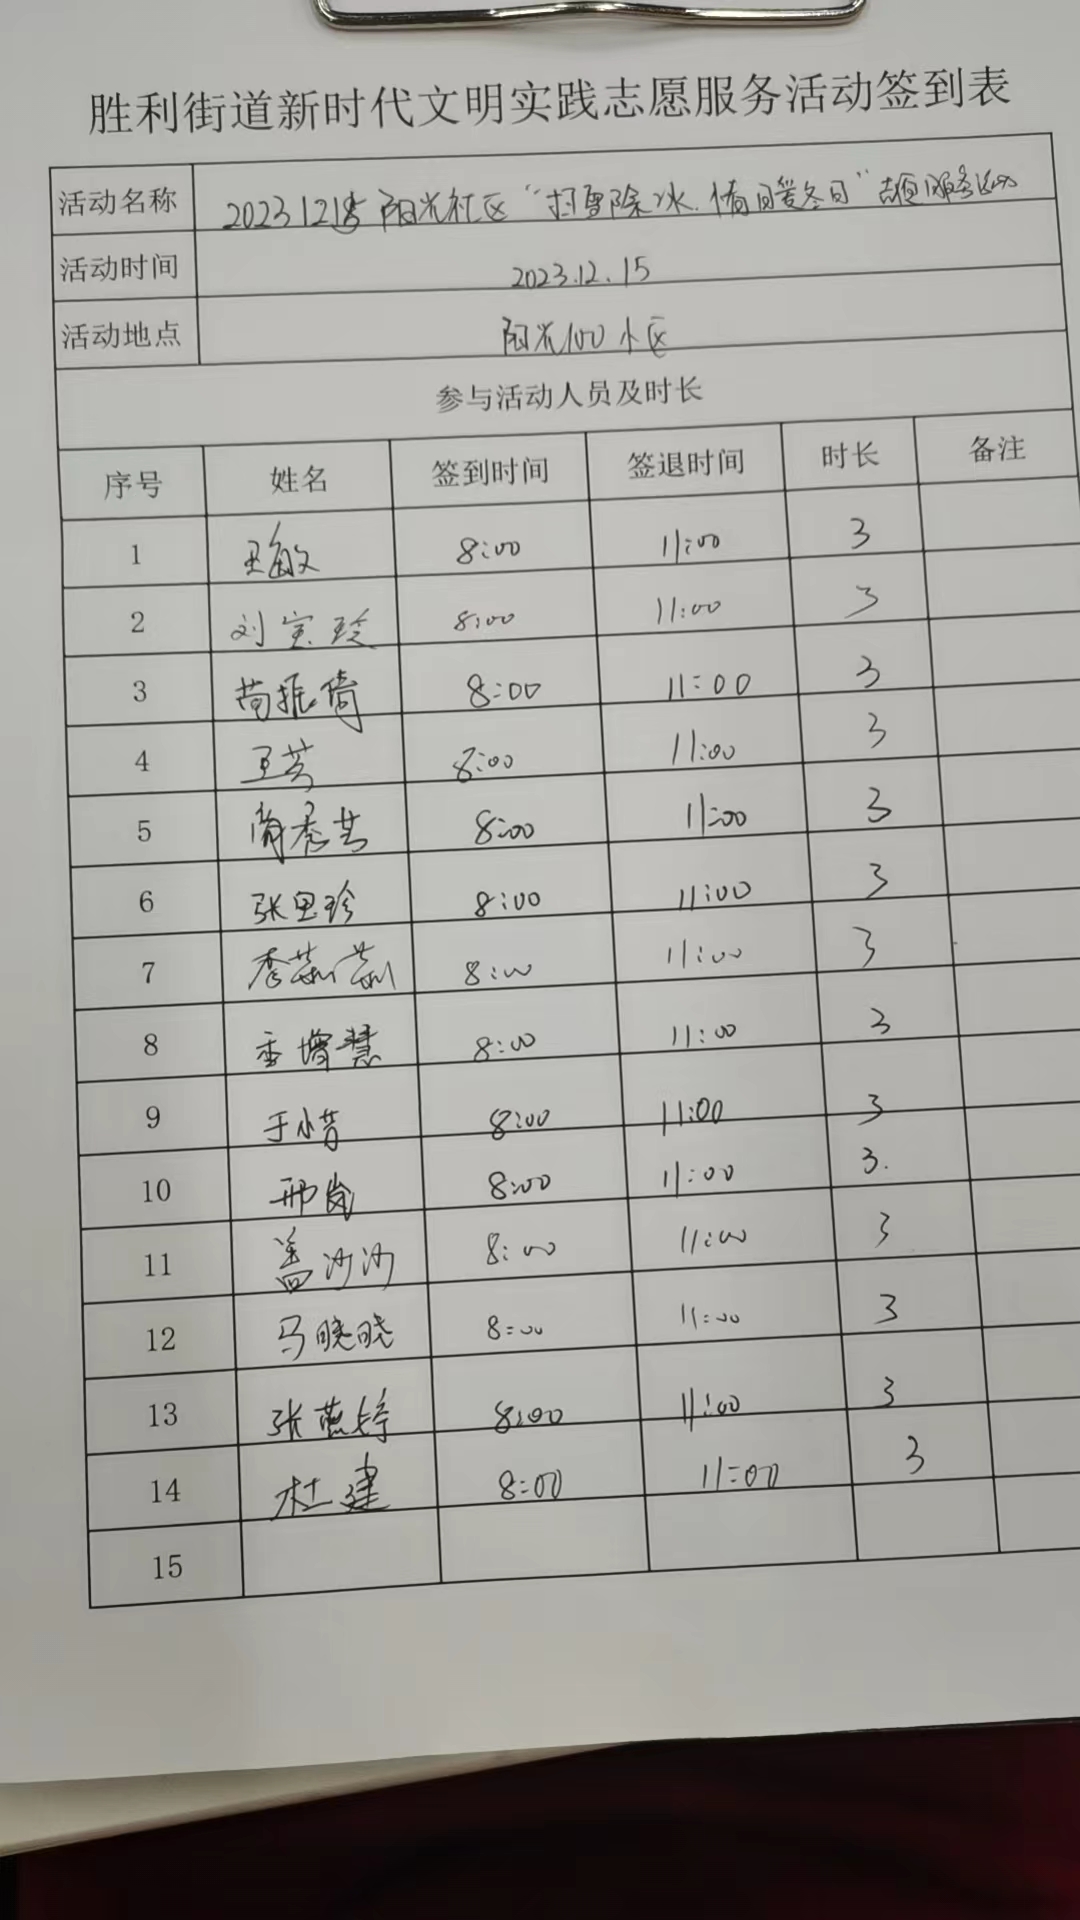 胜利街道新时代文明实践志愿服务活动签到表
活动名称 20231215 阳光社区“扫雪除冰.情暖冬日”志愿服务活动
活动时间 2023.12.15
活动地点 阳光100小区
参与活动人员及时长
序号 姓名 签到时间 签退时间 时长 备注
1 王敏 8:00 11:00 3
2 刘宝玲 8:00 11:00 3
3 苗振倚 8:00 11:00 3
4 王芳 8:00 11:00 3
5 8:00 11:00 3
6 张思珍 8:00 11:00 3
7 李茹茹 8:00 11:00 3
8 李增慧 8:00 11:00 3
9 于小惜 8:00 11:00 3
10 邢岗 8:00 11:00 3.
11 盖沙沙 8:00 11:00 3
12 马晓晓 8:00 11:00 3
13 张燕婷 8:00 11:00 3
14 杜建 8:00 11:00 3
15